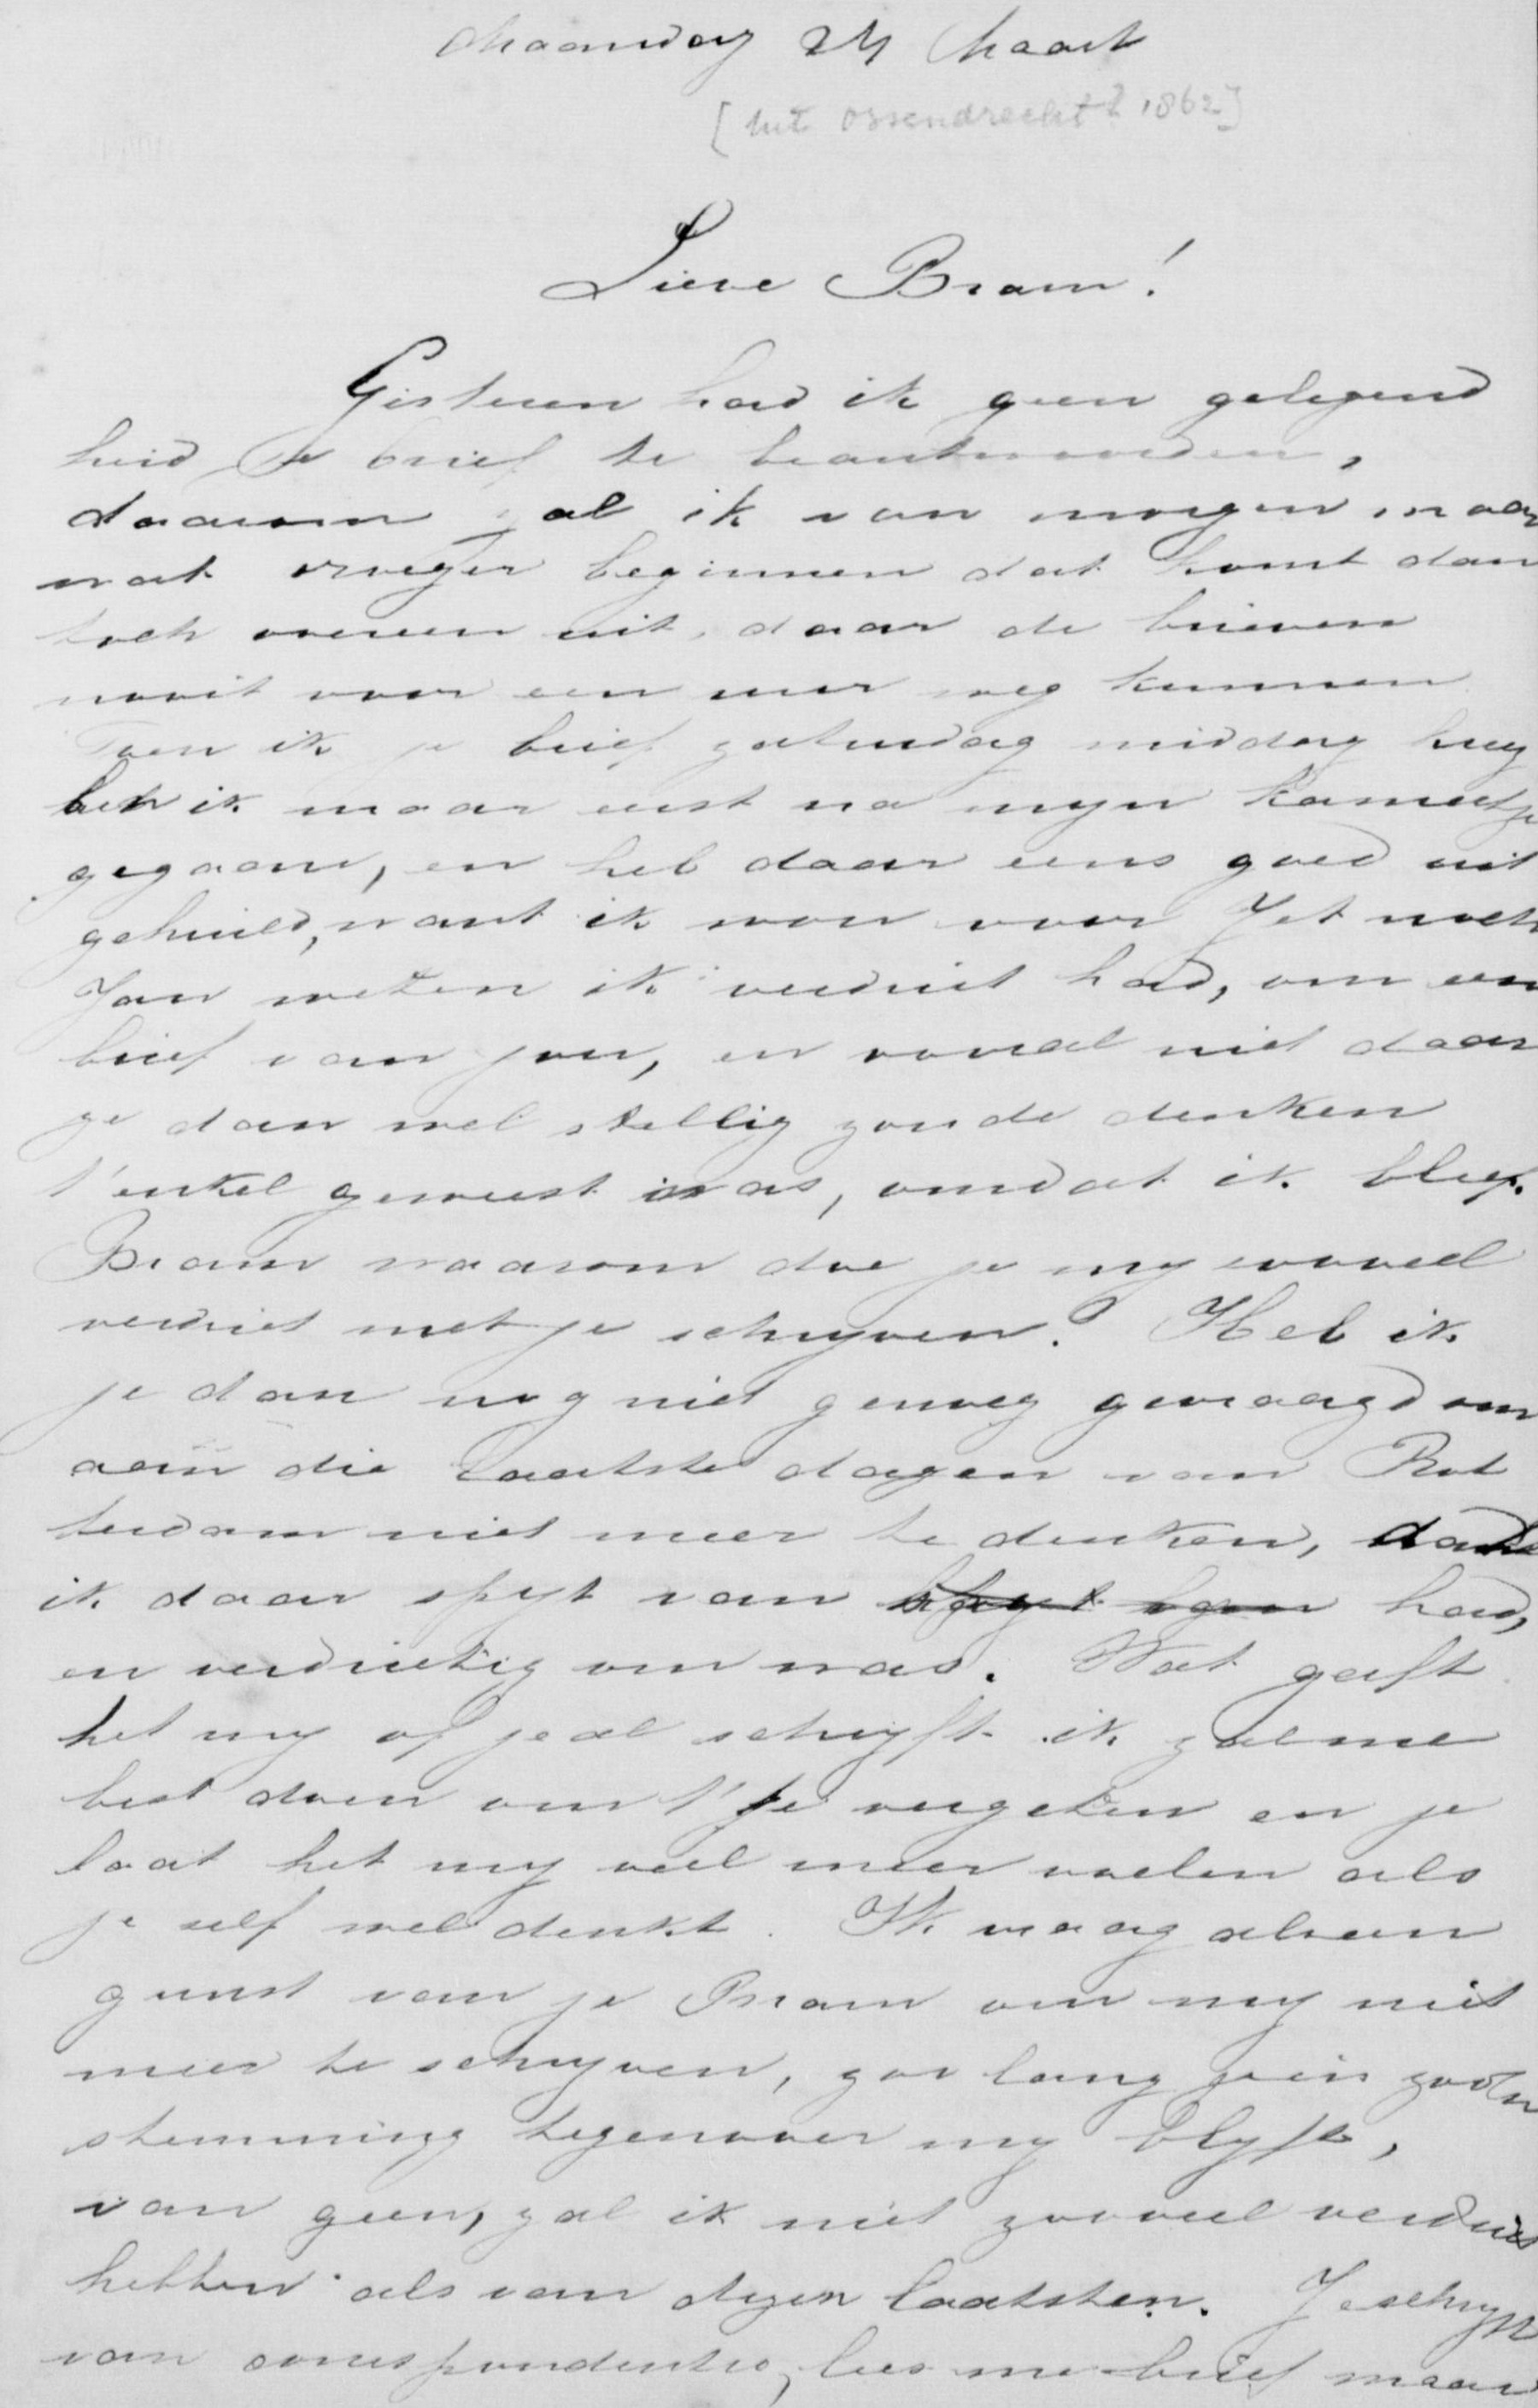 Maandag 24 Maart
[uit Ossendrecht? 1862]
Lieve Bram!
Gisteren had ik geen gelegend
heid je brief te beantwoorden,
daarom zal ik van morgen maar
wat vroeger beginnen dat komt dan
toch overeen uit, daar de brieven
nooit voor een uur weg kunnen
Toen ik je brief zaturdag middag kreeg
ben ik maar eerst na myn kamertje
gegaan, en heb daar eens goed uit
gehuild, want ik wou voor Jet noch
Jan weten ik verdriet had, om een
brief van jou, en vooral niet daar
ze dan wel stellig zoude denken
t'enkel geweest was, omdat ik bleef.
Bram waarom doe je my zooveel
verdriet met je schryven? Heb ik
je dan nog niet genoeg gevraagd om
aan die laatste dagen van Rot
terdam niet meer te denken, dat
ik daar spyt van had,
en verdrietig om was. Wat geeft
het my of je al schryft ik zal me
best doen om t' te vergeten en je
laat het my veel meer voelen als
je self wel denkt. Ik vraag als een
gunst van je Bram om my niet
meer te schryven, zoo lang je in zoo'n
stemming tegenover my blyft,
van geen, zal ik niet zooveel verdriet
hebben als van dezen laatsten. Je schryft
van correspondentie, lees me brief maar